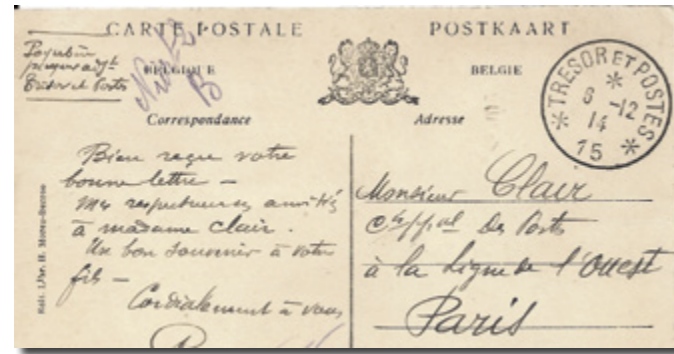 CARTE POSTALE
POSTKAART
BELGIQUE
BELGIE
Trésor et Postes
Correspondance
Adresse
TRESOR ET POSTES
6 -12
14
* 75 *
Bien reçu votre
bonne lettre —
Mes respectueuses amitiés
à madame Clair.
Un bon souvenir à votre
fils —
Cordialement à vous
Monsieur Clair
des Postes
à la ligne de l'Ouest
Paris